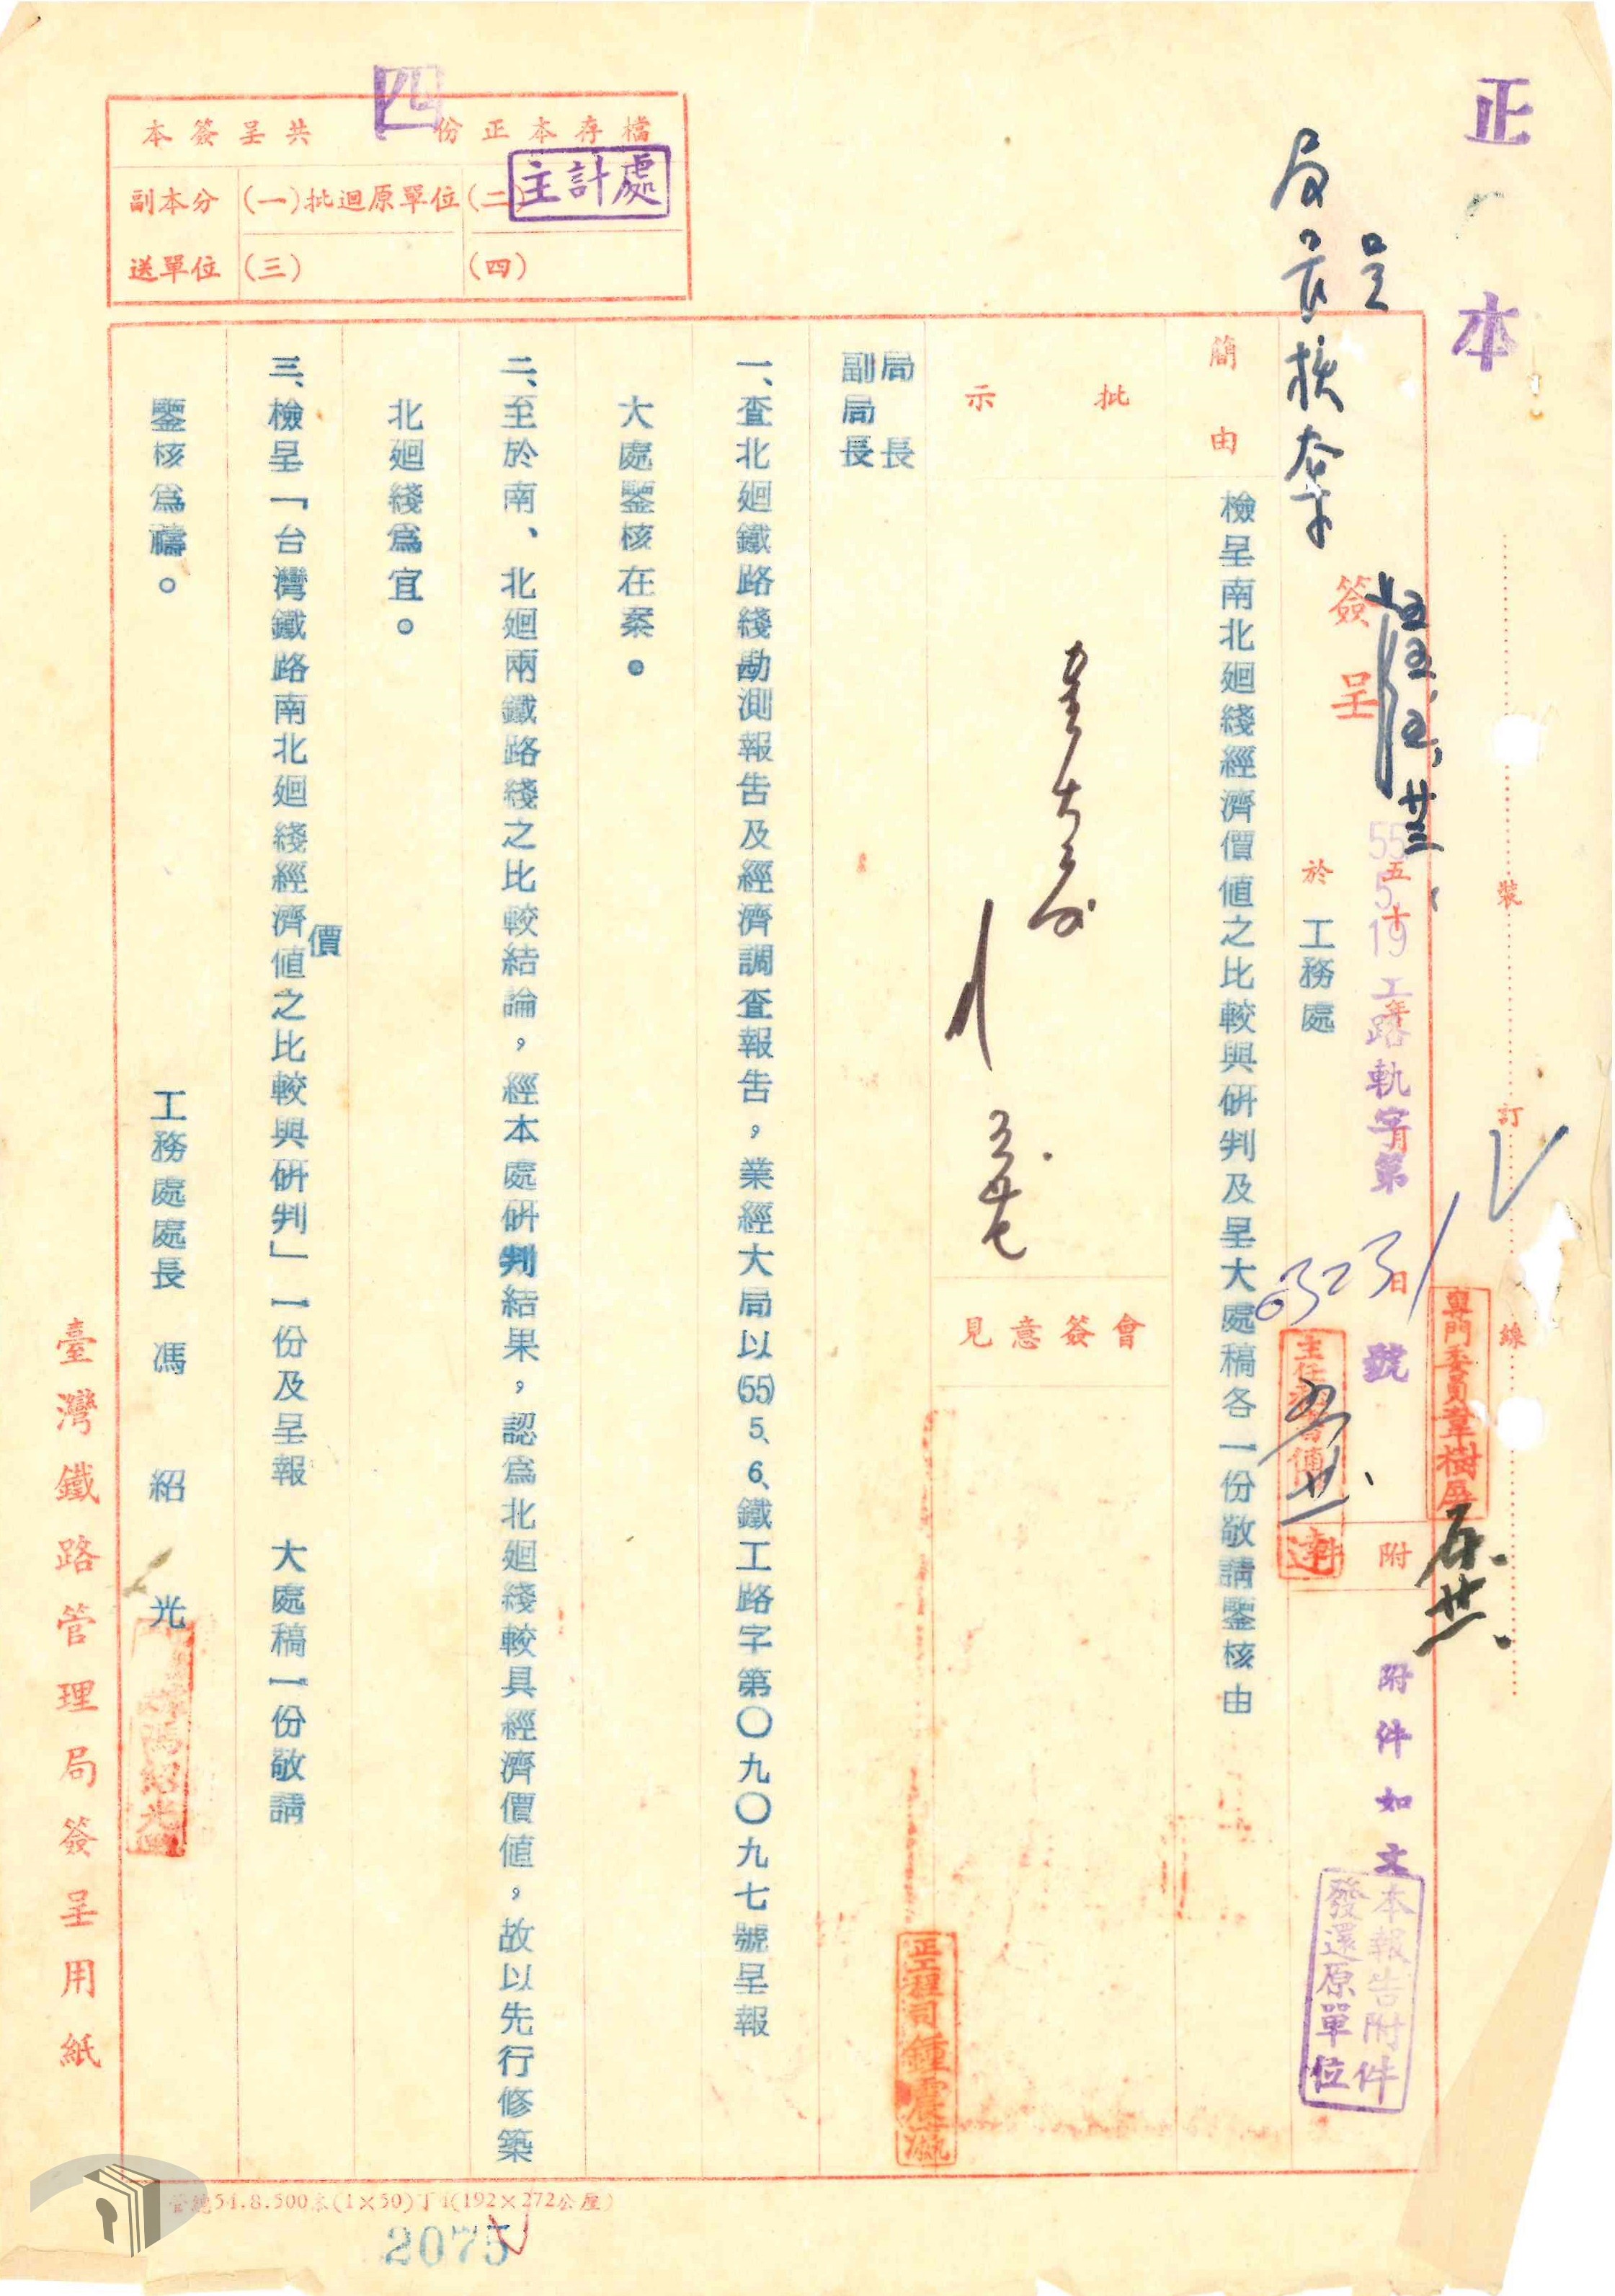 正本
本簽呈共 四 份正本存檔
副本分送單位
(一)批迴原單位
(二)主計處
(三)
(四)
裝
訂
線
簽呈
五十 年 月 日
55 5 19
工路軌字第 號
於 工務處
附件
附件如文
本報告附件
發還原單位
專門委員章樹屏
簡由
檢呈南北廻綫經濟價值之比較與研判及呈大處稿各一份敬請鑒核由
批示
會簽意見
局長
副局長
一、查北廻鐵路綫勘測報告及經濟調查報告,業經大局以(55)5、6、鐵工路字第〇九〇九七號呈報
大處鑒核在案。
二、至於南、北廻兩鐵路綫之比較結論,經本處研判結果,認為北廻綫較具經濟價值,故以先行修築
北廻綫為宜。
三、檢呈「台灣鐵路南北廻綫經濟價值之比較與研判」一份及呈報 大處稿一份敬請
鑒核為禱。
工務處處長 馮紹光
正工程司鍾震瀛
臺灣鐵路管理局簽呈用紙
2075